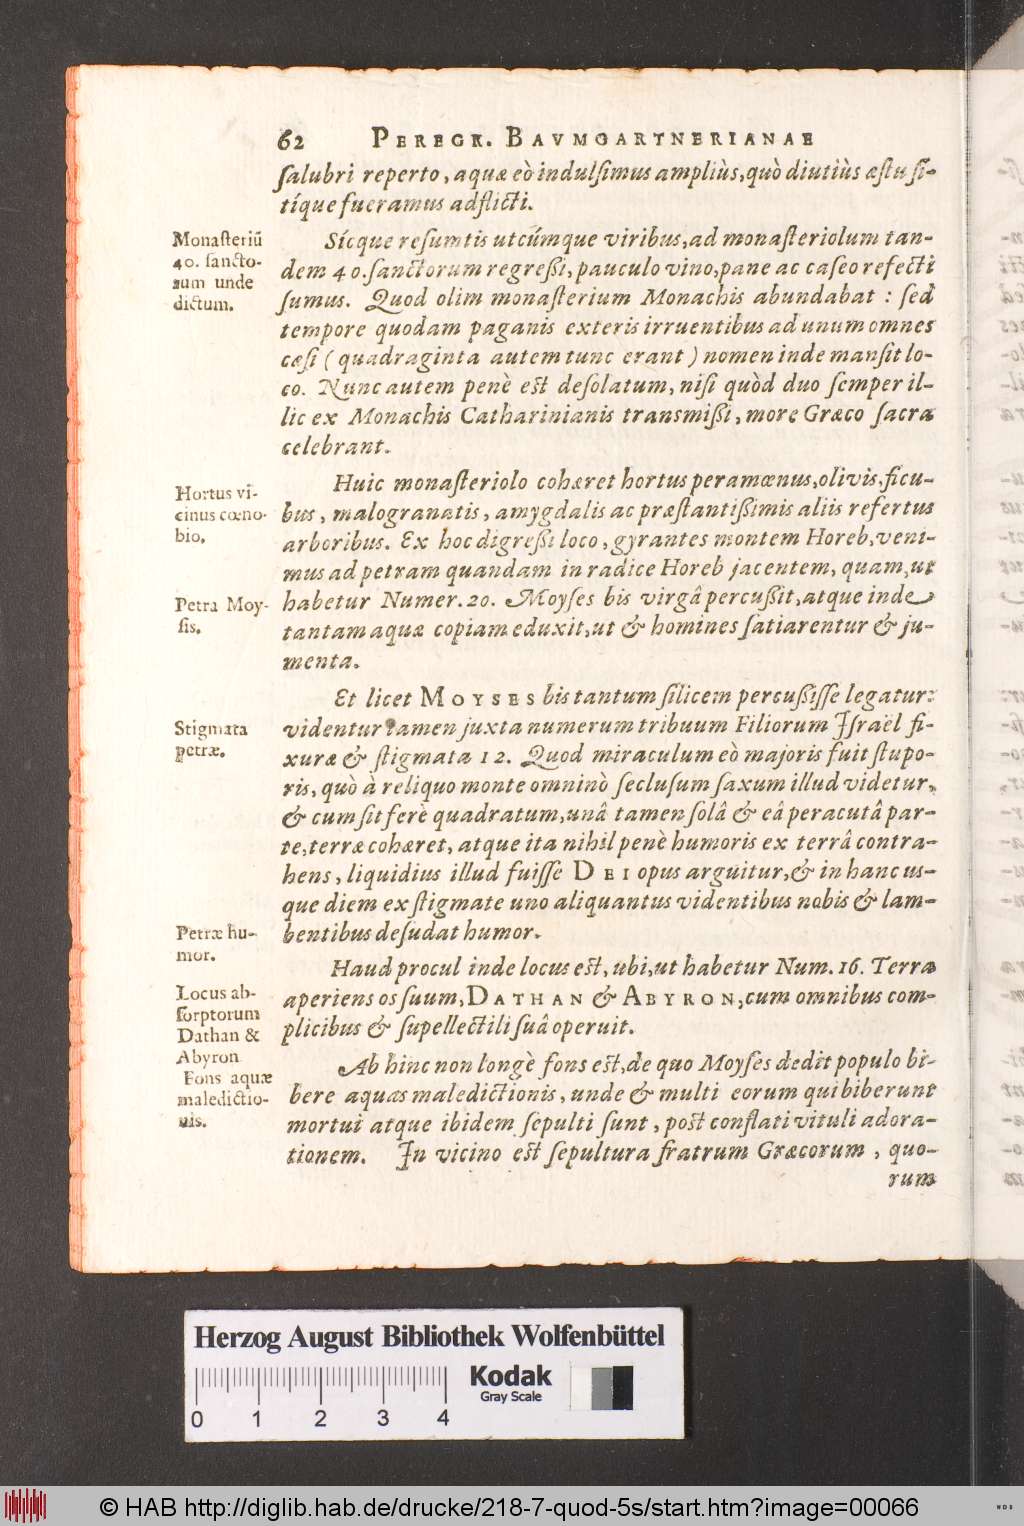 62 PEREGR. BAVMGARTNERIANAE
ſalubri reperto, aquæ eò indulſimus ampliùs, quò diutiùs æſtu ſi-
tíque fueramus adflicti.
Monaſteriū
40. ſancto-
rum unde
dictum.
Sícque reſumtis utcúmque viribus, ad monaſteriolum tan-
dem 40. ſanctorum regreßi, pauculo vino, pane ac caſeo refecti
ſumus. Quod olim monaſterium Monachis abundabat : ſed
tempore quodam paganis exteris irruentibus ad unum omnes
cæſi ( quadraginta autem tunc erant ) nomen inde manſit lo-
co. Nunc autem penè eſt deſolatum, niſi quòd duo ſemper il-
lic ex Monachis Catharinianis transmißi, more Græco ſacra
celebrant.
Hortus vi-
cinus cœno-
bio.
Huic monaſteriolo cohæret hortus peramœnus, olivis, ficu-
bus, malogranatis, amygdalis ac præſtantißimis aliis refertus
arboribus. Ex hoc digreßi loco, gyrantes montem Horeb, veni-
mus ad petram quandam in radice Horeb jacentem, quam, ut
Petra Moy-
ſis.
habetur Numer. 20. Moyſes bis virgâ percußit, atque inde
tantam aquæ copiam eduxit, ut & homines ſatiarentur & ju-
menta.
Et licet MOYSES bis tantum ſilicem percußiſſe legatur:
Stigmata
petræ.
videntur tamen juxta numerum tribuum Filiorum Iſraël fi-
xuræ & ſtigmata 12. Quod miraculum eò majoris fuit ſtupo-
ris, quò à reliquo monte omninò ſecluſum ſaxum illud videtur,
& cum ſit ferè quadratum, unâ tamen ſolâ & eâ peracutâ par-
te, terræ cohæret, atque ita nihil penè humoris ex terrâ contra-
hens, liquidius illud fuiſſe DEI opus arguitur, & in hanc us-
que diem ex ſtigmate uno aliquantus videntibus nobis & lam-
Petræ hu-
mor.
bentibus deſudat humor.
Haud procul inde locus eſt, ubi, ut habetur Num. 16. Terra
Locus ab-
ſorptorum
Dathan &
Abyron
aperiens os ſuum, DATHAN & ABYRON, cum omnibus com-
plicibus & ſupellectili ſuâ operuit.
Fons aquæ
maledictio-
nis.
Ab hinc non longè fons eſt, de quo Moyſes dedit populo bi-
bere aquas maledictionis, unde & multi eorum qui biberunt
mortui atque ibidem ſepulti ſunt, poſt conflati vituli adora-
tionem. In vicino eſt ſepultura fratrum Græcorum, quo-
rum
Herzog August Bibliothek Wolfenbüttel
Kodak
Gray Scale
0 1 2 3 4
© HAB http://diglib.hab.de/drucke/218-7-quod-5s/start.htm?image=00066